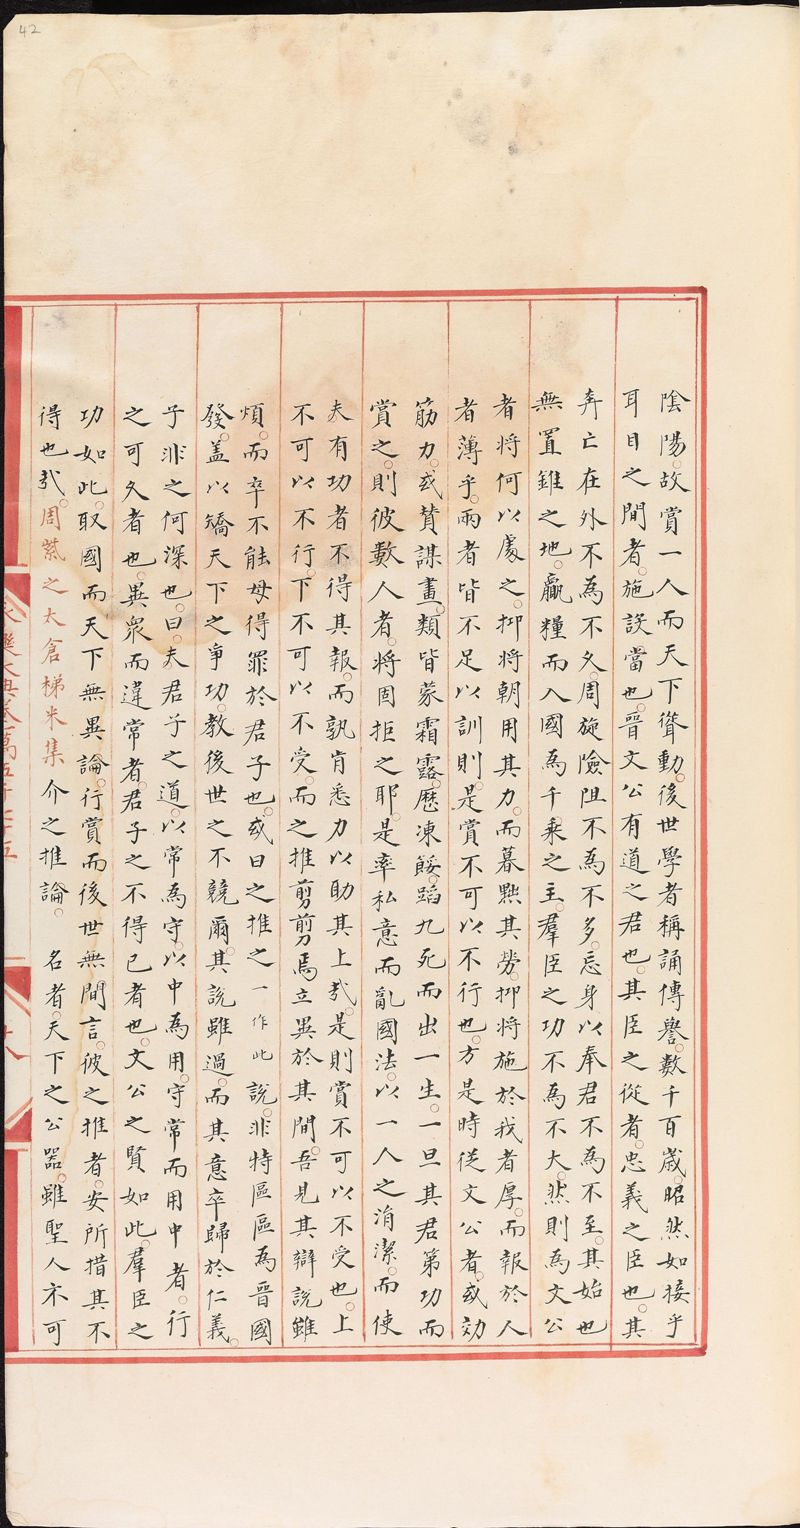 42
陰陽。故賞一人而天下聳動。後世學者稱誦傳譽。數千百歳。昭然如接乎
耳目之間者。施設當也。晉文公有道之君也。其臣之從者。忠義之臣也。其
奔亡在外不為不久。周旋險阻不為不多。忘身以奉君不為不至。其始也
無置錐之地。贏糧而入國為千乘之主。羣臣之功不為不大。然則為文公
者將何以處之。抑將朝用其力。而暮黜其勞。抑將施於我者厚。而報於人
者薄乎。兩者皆不足以訓則。是賞不可以不行也。方是時從文公者。或効
筋力。或賛謀畫。類皆蒙霜露。歴凍餒。蹈九死而出一生。一旦其君第功而
賞之。則彼數人者。將固拒之耶。是率私意而亂國法。以一人之㳙潔。而使
夫有功者不得其報。而孰肯悉力以助其上㢤。是則賞不可以不受也。上
不可以不行。下不可以不受。而之推剪剪焉立異於其間。吾見其辯說雖
煩。而卒不能毋得罪於君子也。或曰之推之一作此說。非特區區為晉國
發。盖以矯天下之争功。教後世之不競爾。其說雖過。而其意卒歸於仁義。
子非之何深也。曰。夫君子之道。以常為守。以中為用。守常而用中者。行
之可久者也。異衆而違常者。君子之不得已者也。文公之賢如此。羣臣之
功如此。取國而天下無異論。行賞而後世無間言。彼之推者。安所措其不
得也㢤。周紫之太倉稊米集介之推論。 名者。天下之公器。雖聖人不可
永樂大典卷一萬五千七十五